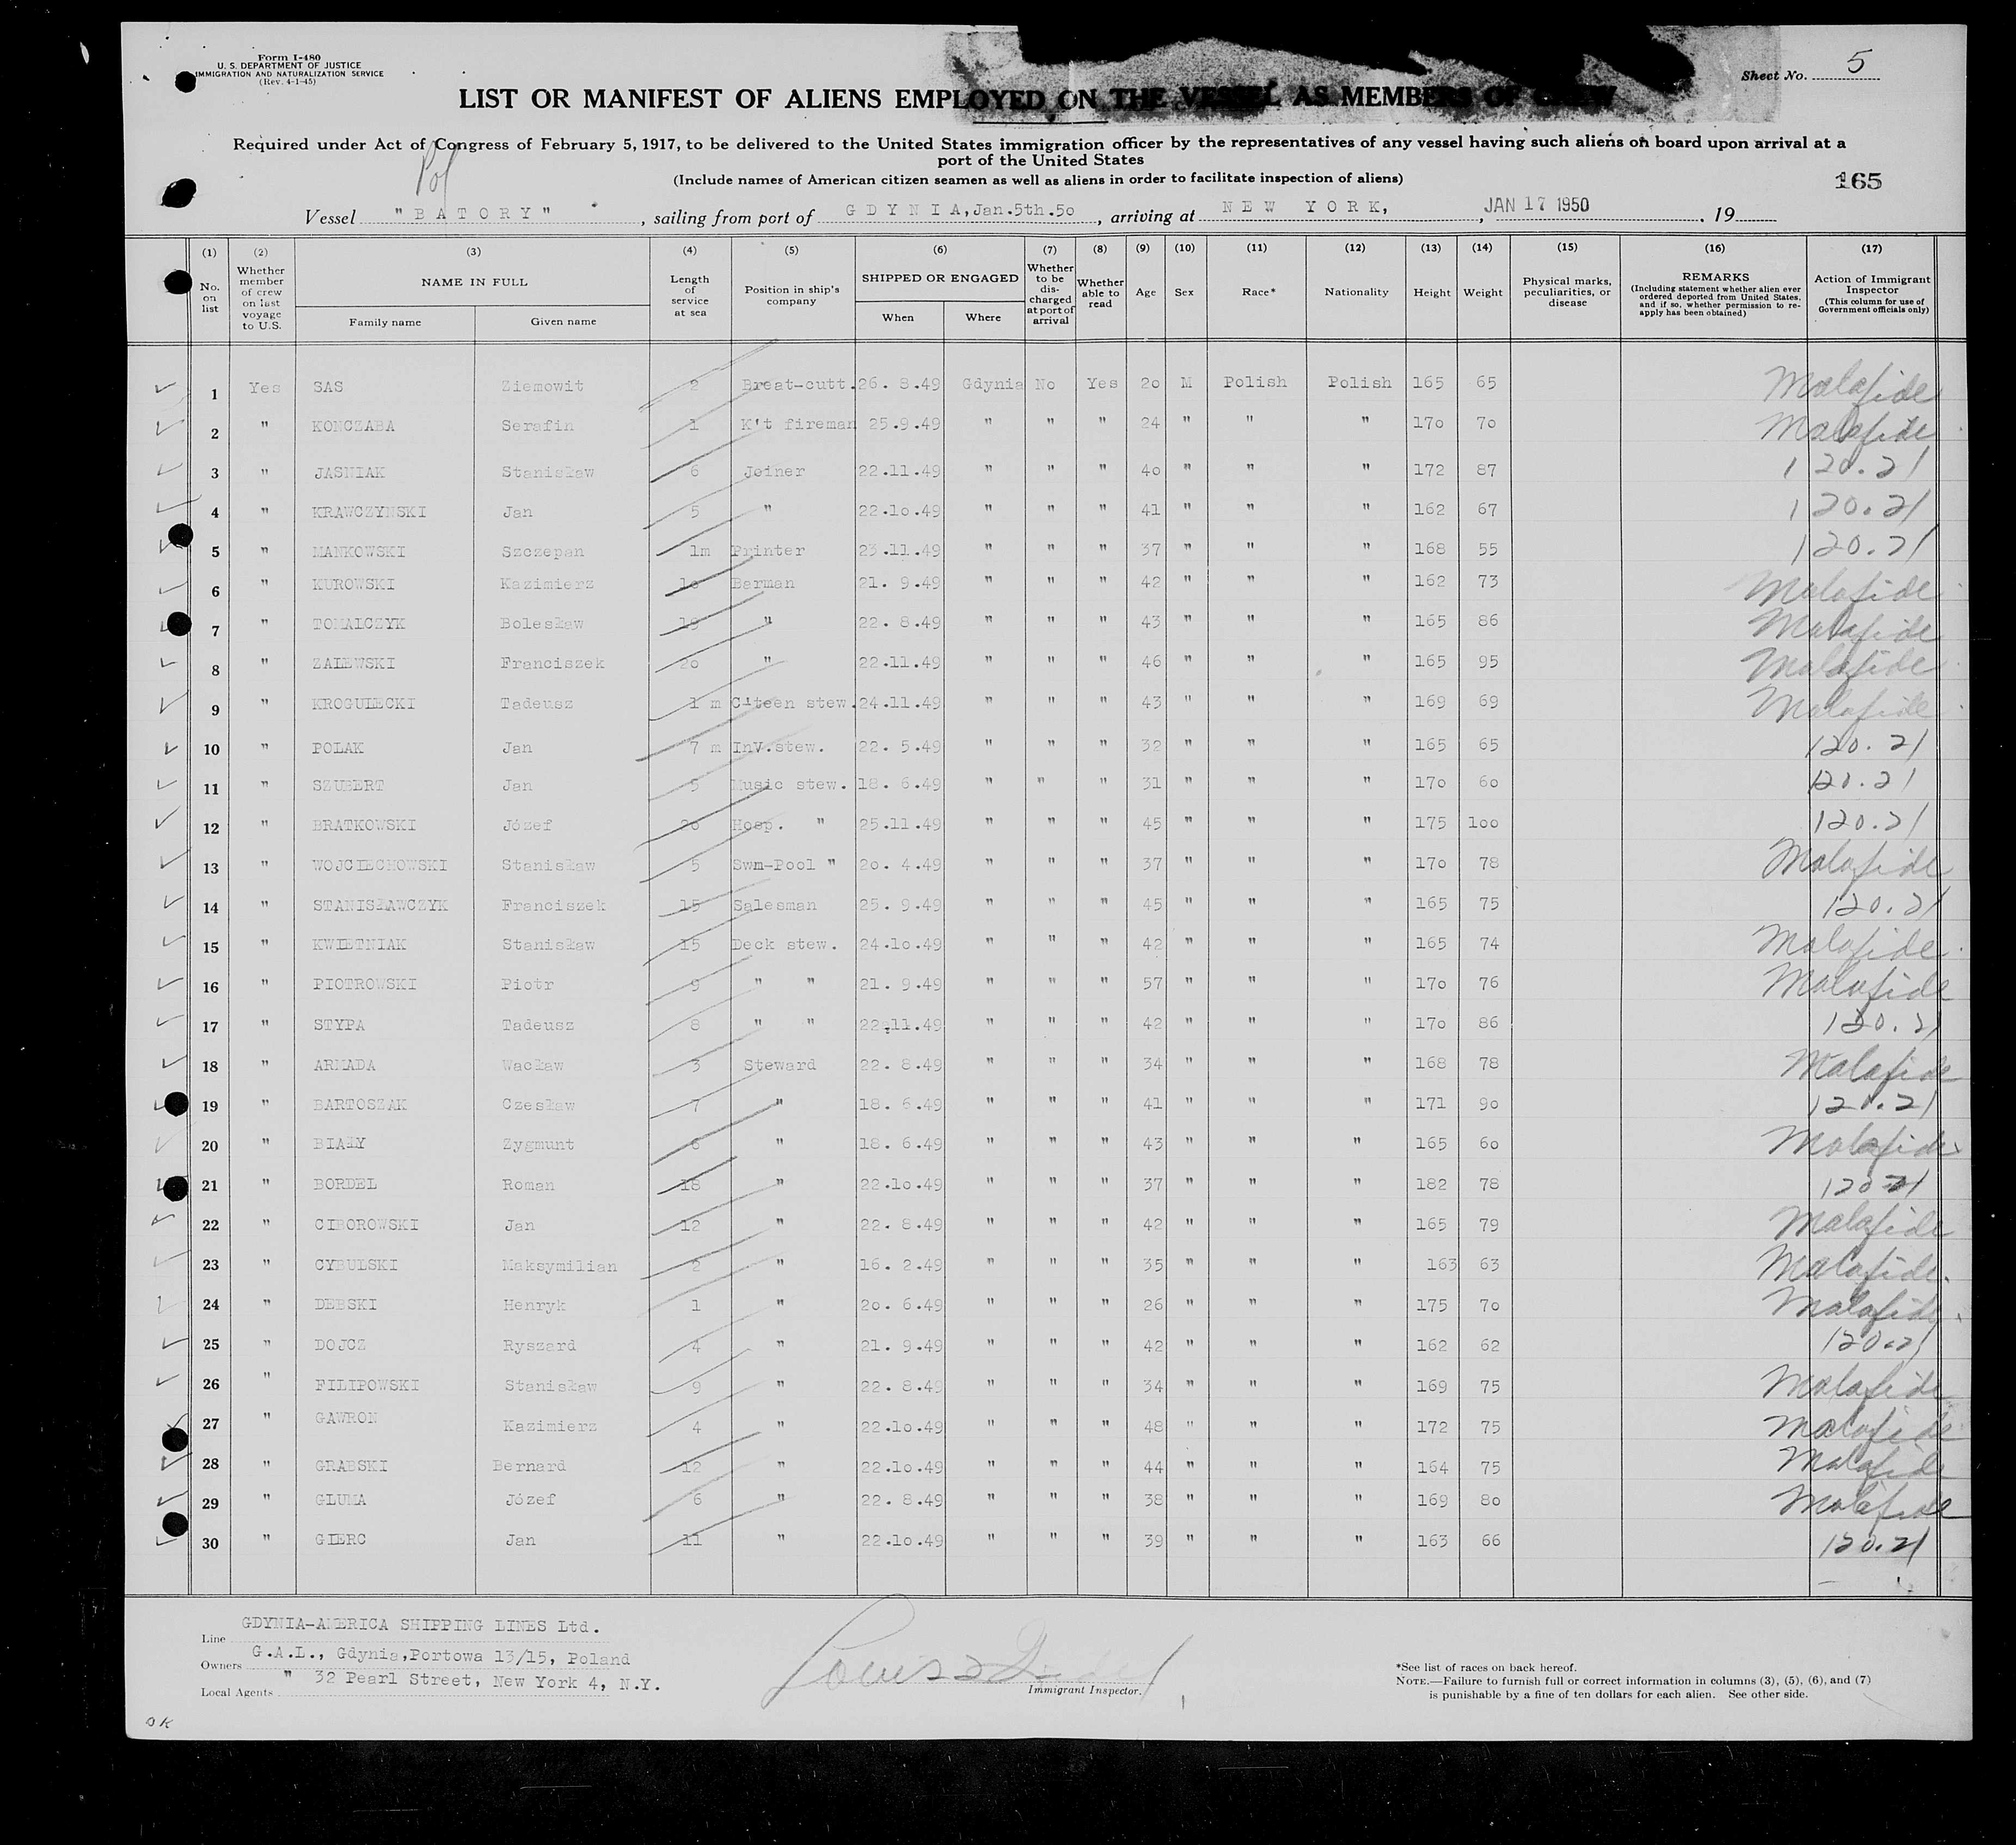 Form I-480
U. S. DEPARTMENT OF JUSTICE
IMMIGRATION AND NATURALIZATION SERVICE
(Rev. 4-1-45)
Sheet No. 5
LIST OR MANIFEST OF ALIENS EMPLOYED ON THE VESSEL AS MEMBERS OF CREW
Required under Act of Congress of February 5, 1917, to be delivered to the United States immigration officer by the representatives of any vessel having such aliens on board upon arrival at a
port of the United States
Pol
(Include names of American citizen seamen as well as aliens in order to facilitate inspection of aliens)
165
Vessel "BATORY", sailing from port of GDYNIA, Jan.5th.50, arriving at NEW YORK, JAN 17 1950, 19
(1) (2) (3) (4) (5) (6) (7) (8) (9) (10) (11) (12) (13) (14) (15) (16) (17)
No. on list | Whether member of crew on last voyage to U.S. | NAME IN FULL Family name Given name | Length of service at sea | Position in ship's company | SHIPPED OR ENGAGED When Where | Whether to be discharged at port of arrival | Whether able to read | Age | Sex | Race* | Nationality | Height | Weight | Physical marks, peculiarities, or disease | REMARKS (Including statement whether alien ever ordered deported from United States, and if so, whether permission to reapply has been obtained) | Action of Immigrant Inspector (This column for use of Government officials only)
1 Yes SAS Ziemowit 2 Breat-cutt. 26. 8.49 Gdynia No Yes 20 M Polish Polish 165 65 Malafide
2 " KONCZABA Serafin 1 K't fireman 25.9.49 " " " 24 " " " 170 70 Malafide
3 " JASNIAK Stanisław 6 Joiner 22.11.49 " " " 40 " " " 172 87 120.21
4 " KRAWCZYNSKI Jan 5 " 22.10.49 " " " 41 " " " 162 67 120.21
5 " MANKOWSKI Szczepan 1m Printer 23.11.49 " " " 37 " " " 168 55 120.21
6 " KUROWSKI Kazimierz Barman 21. 9.49 " " " 42 " " " 162 73 Malafide
7 " TOMALCZYK Bolesław 19 " 22. 8.49 " " " 43 " " " 165 86 Malafide
8 " ZALEWSKI Franciszek 20 " 22.11.49 " " " 46 " " " 165 95 Malafide
9 " KROGULECKI Tadeusz 1 m C'teen stew. 24.11.49 " " " 43 " " " 169 69 Malafide
10 " POLAK Jan 7 m InV.stew. 22. 5.49 " " " 32 " " " 165 65 120.21
11 " SZUBERT Jan 5 Music stew. 18. 6.49 " " " 31 " " " 170 60 120.21
12 " BRATKOWSKI Józef 20 Hosp. " 25.11.49 " " " 45 " " " 175 100 120.21
13 " WOJCIECHOWSKI Stanisław 5 Swm-Pool " 20. 4.49 " " " 37 " " " 170 78 Malafide
14 " STANISŁAWCZYK Franciszek 15 Salesman 25. 9.49 " " " 45 " " " 165 75 120.21
15 " KWIETNIAK Stanisław 15 Deck stew. 24.10.49 " " " 42 " " " 165 74 Malafide
16 " PIOTROWSKI Piotr 9 " " 21. 9.49 " " " 57 " " " 170 76 Malafide
17 " STYPA Tadeusz 8 " " 22.11.49 " " " 42 " " " 170 86 120.21
18 " ARMADA Wacław 3 Steward 22. 8.49 " " " 34 " " " 168 78 Malafide
19 " BARTOSZAK Czesław 7 " 18. 6.49 " " " 41 " " " 171 90 120.21
20 " BIAŁY Zygmunt 6 " 18. 6.49 " " " 43 " " " 165 60 Malafide
21 " BORDEL Roman 18 " 22.10.49 " " " 37 " " " 182 78 120.21
22 " CIBOROWSKI Jan 12 " 22. 8.49 " " " 42 " " " 165 79 Malafide
23 " CYBULSKI Maksymilian 2 " 16. 2.49 " " " 35 " " " 163 63 Malafide
24 " DEBSKI Henryk 1 " 20. 6.49 " " " 26 " " " 175 70 Malafide
25 " DOJCZ Ryszard 4 " 21. 9.49 " " " 42 " " " 162 62 120.21
26 " FILIPOWSKI Stanisław 9 " 22. 8.49 " " " 34 " " " 169 75 Malafide
27 " GAWRON Kazimierz 4 " 22.10.49 " " " 48 " " " 172 75 Malafide
28 " GRABSKI Bernard 12 " 22.10.49 " " " 44 " " " 164 75 Malafide
29 " GLUMA Józef 6 " 22. 8.49 " " " 38 " " " 169 80 Malafide
30 " GIERC Jan 11 " 22.10.49 " " " 39 " " " 163 66 120.21
Line GDYNIA-AMERICA SHIPPING LINES Ltd.
Owners G.A.L., Gdynia,Portowa 13/15, Poland
Local Agents " 32 Pearl Street, New York 4, N.Y.
Immigrant Inspector.
*See list of races on back hereof.
NOTE.—Failure to furnish full or correct information in columns (3), (5), (6), and (7)
is punishable by a fine of ten dollars for each alien. See other side.
OK